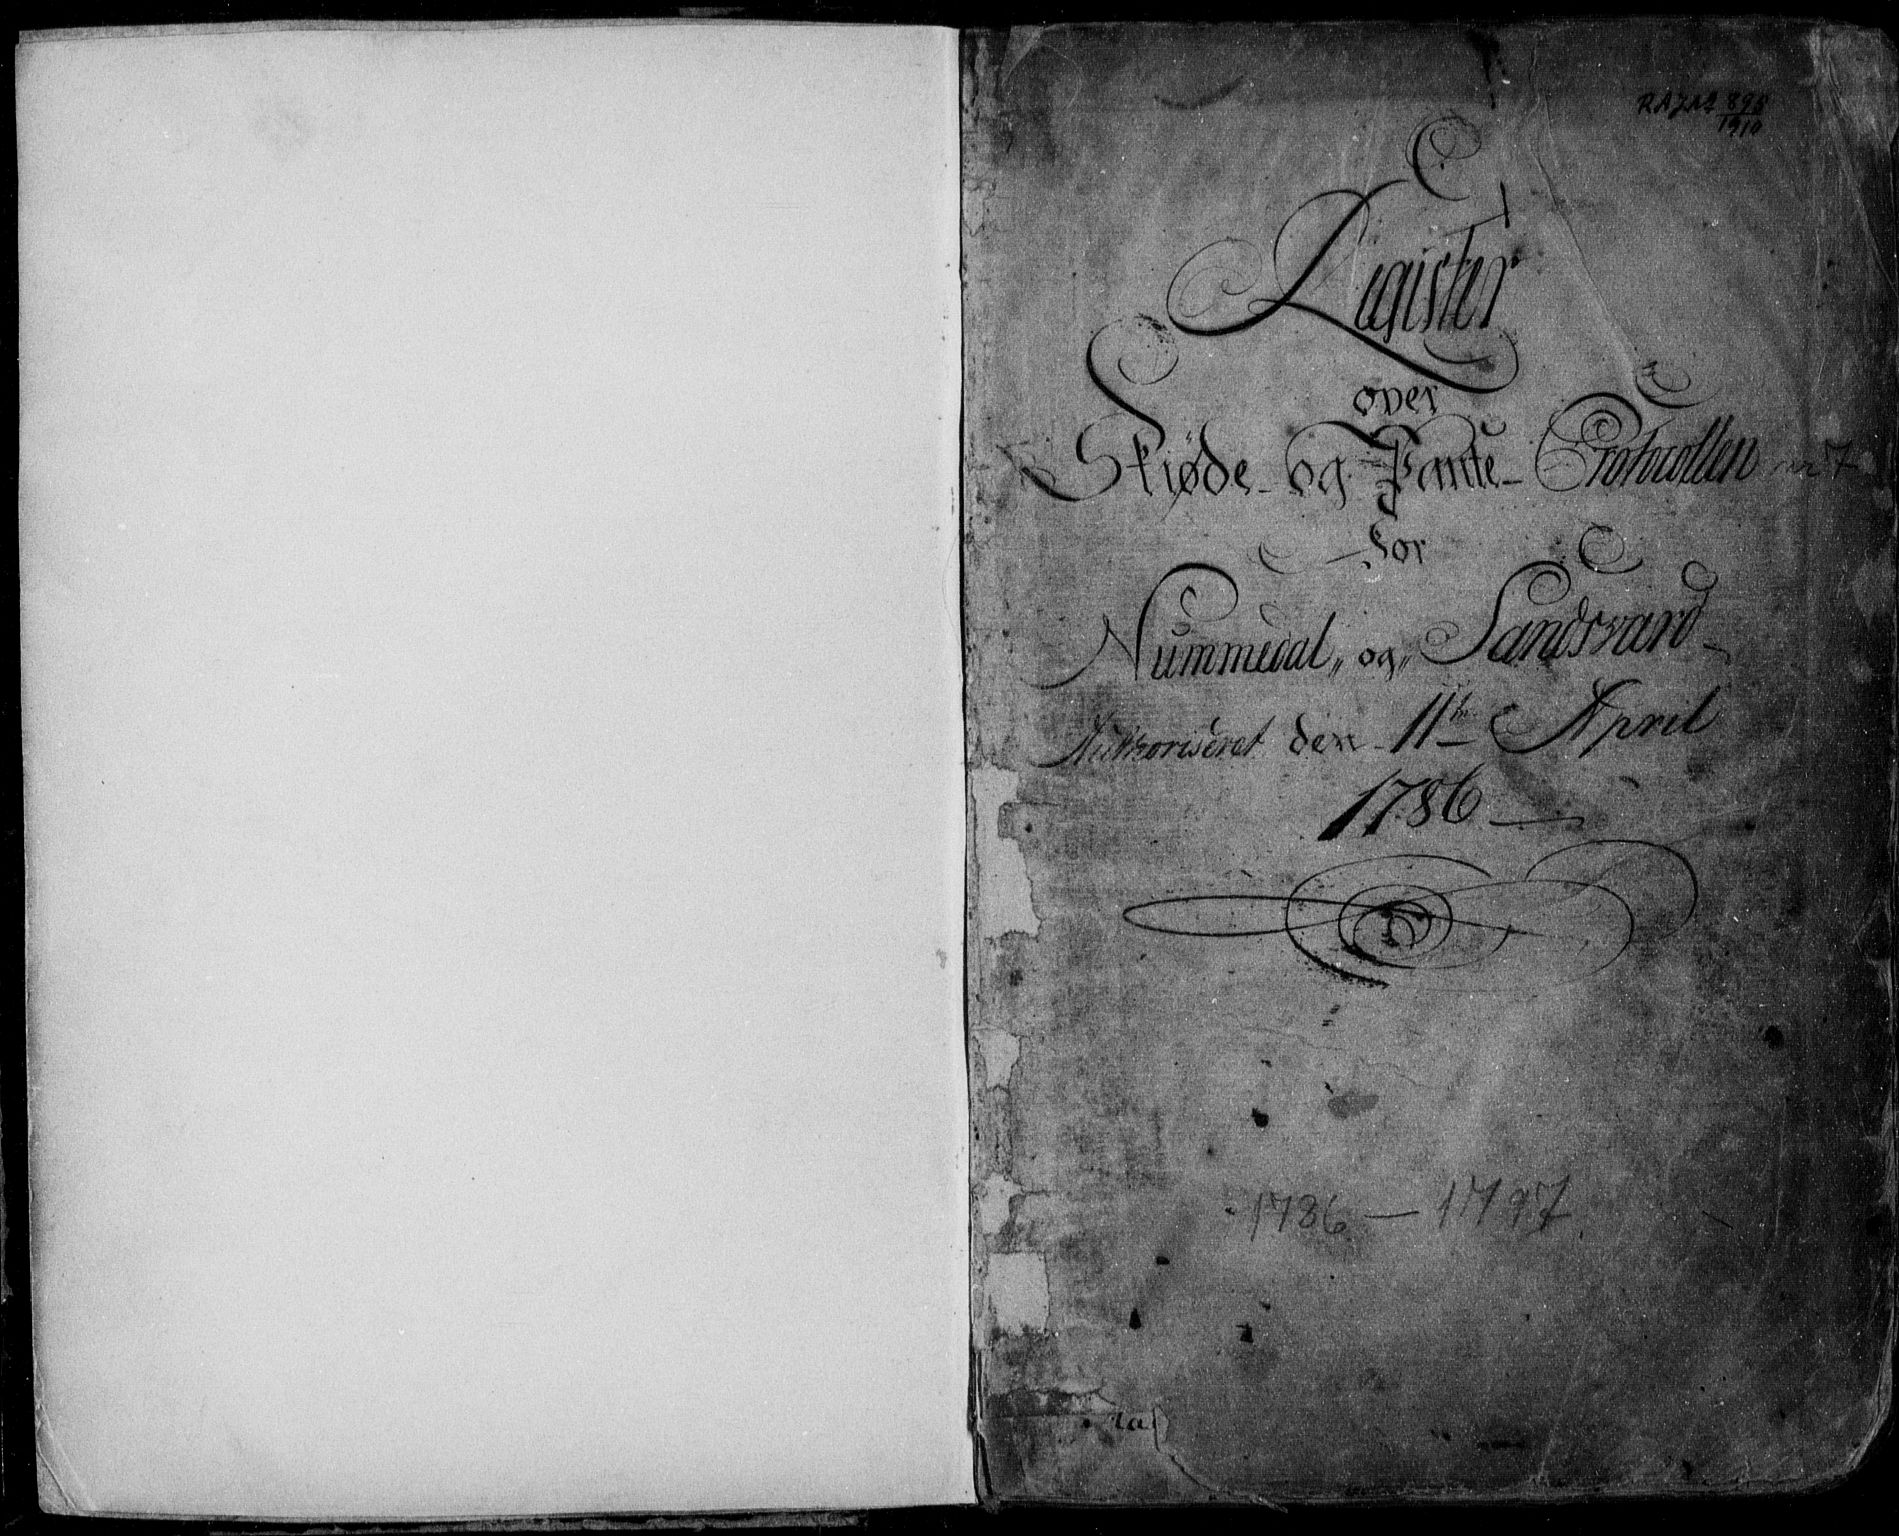 RAJNo 895/1910
Register
over
Skiøde- og Pante- Protocollen nr 7
for
Nummedal, og, Sandsværd
Authoriseret den 11te April
1786
1786 — 1797